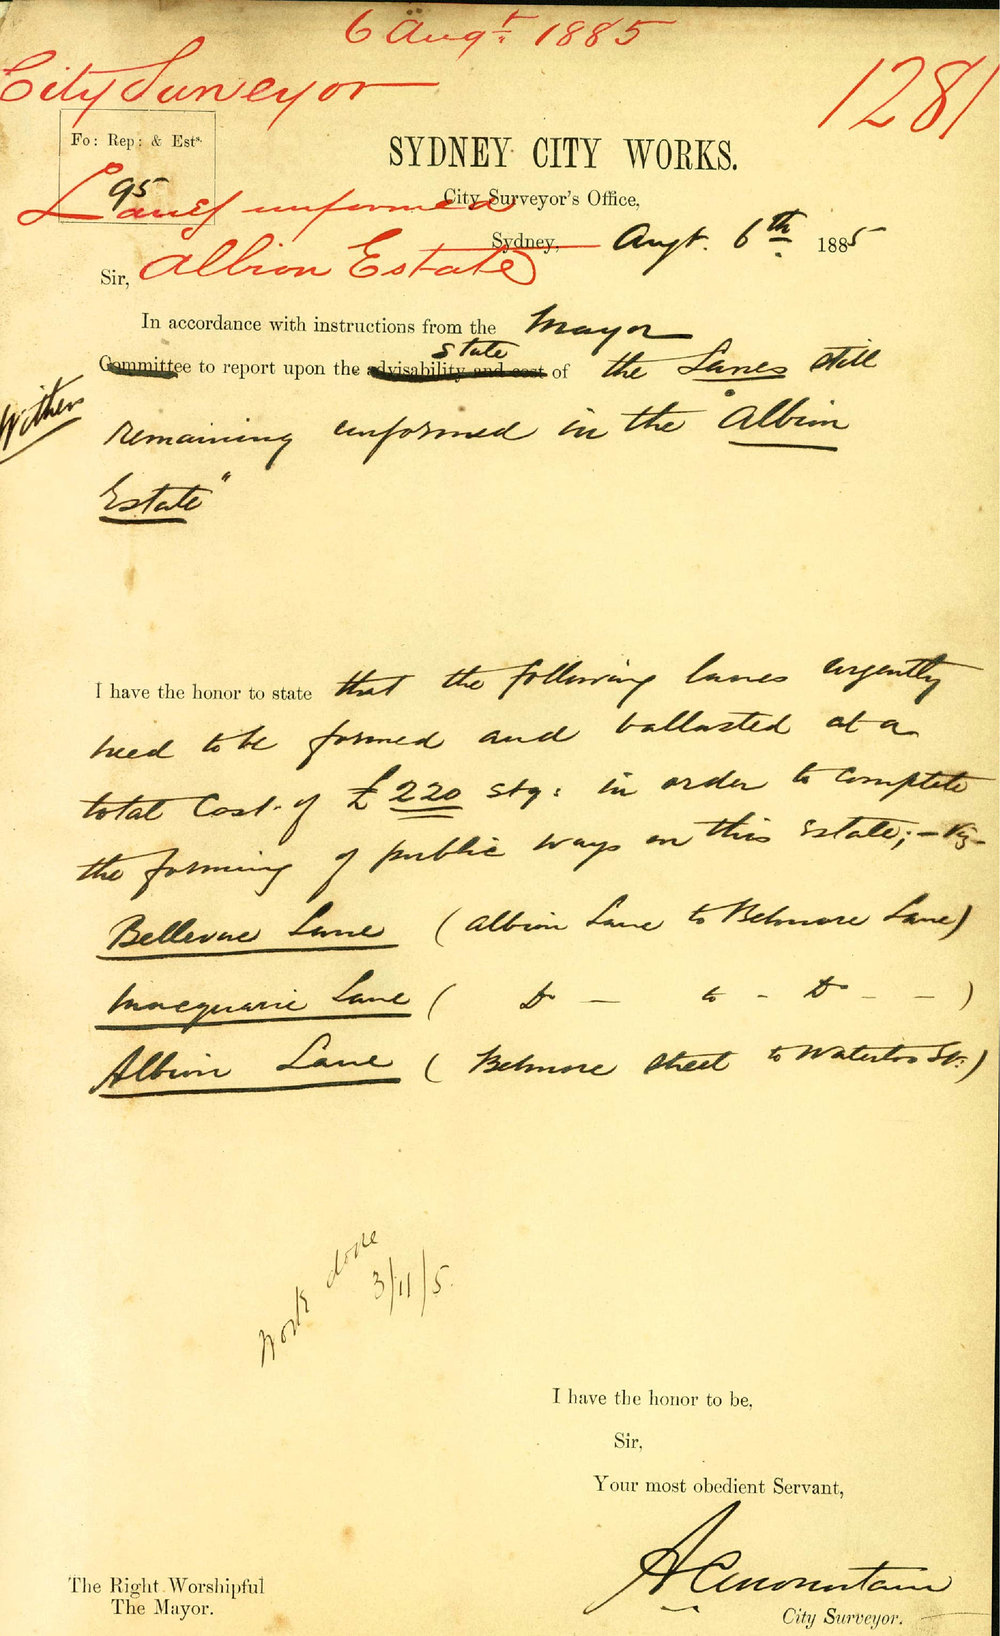 6 Augt. 1885
City Surveyor
1281
Fo: Rep: & Ests.
95
SYDNEY CITY WORKS.
City Surveyor's Office,
Lanes unformed
Sydney, Augt. 6th 1885
Sir,
Albion Estate
In accordance with instructions from the Mayor
state
Committee to report upon the advisability and cost of the Lanes still
Withers
remaining unformed in the "Albion
Estate"
I have the honor to state that the following lanes urgently
need to be formed and ballasted at a
total Cost of £220 stg: in order to complete
the forming of public ways on this Estate; – Viz–
Bellevue Lane (Albion Lane to Belmore Lane)
Macquarie Lane ( Do — to - Do - - )
Albion Lane (Belmore Street to Waterloo St:)
Work done
3/11/5.
I have the honor to be,
Sir,
Your most obedient Servant,
A C Mountain
City Surveyor.
The Right Worshipful
The Mayor.